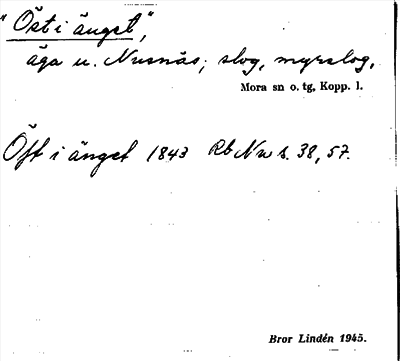 "Öst i änget",
äga u. Nusnäs; slog, myrslog,
Mora sn o. tg, Kopp. l.
Öst i änget 1843 Rb Nu s. 38, 57.
Bror Lindén 1945.